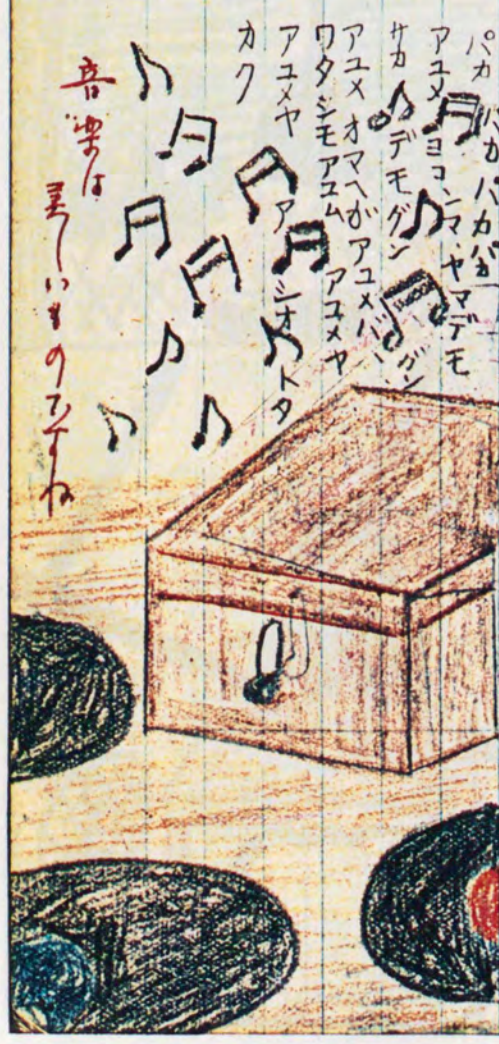 パカ パカ パカが
アユメ ヨコンマ、ヤマデモ
サカ デモグングン
アユメ オマヘガ アユメバ
ワタシモアユム アユメヤ
アユメヤ アシオトタ
カク
音楽は美しいものですね